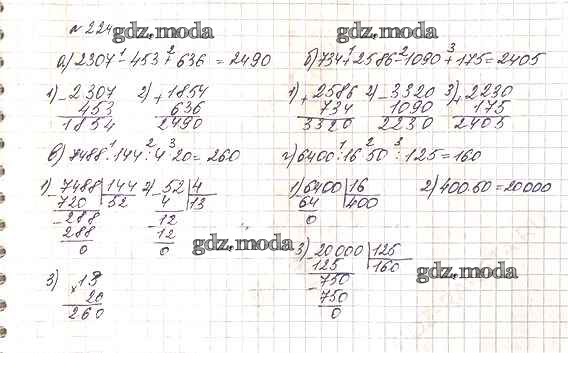 № 224
gdz.moda gdz.moda
а) 2307 -¹ 453 +² 636 = 2490
б) 734 +¹ 2586 -² 1090 +³ 175 = 2405
1) - 2307
453
1854
2) + 1854
636
2490
1) + 2586
734
3320
2) - 3320
1090
2230
3) + 2230
175
2405
в) 7488 :¹ 144 :² 4 ·³ 20 = 260
г) 6400 :¹ 16 ·² 50 :³ 125 = 160
1) - 7488 | 144
720 | 52
- 288
288
0
2) - 52 | 4
4 | 13
- 12
12
0
1) 6400 | 16
64 | 400
0
2) 400 · 60 = 20000
gdz.moda
3) × 13
20
260
3) 20000 | 125
125 | 160
- 750
750
0
gdz.moda